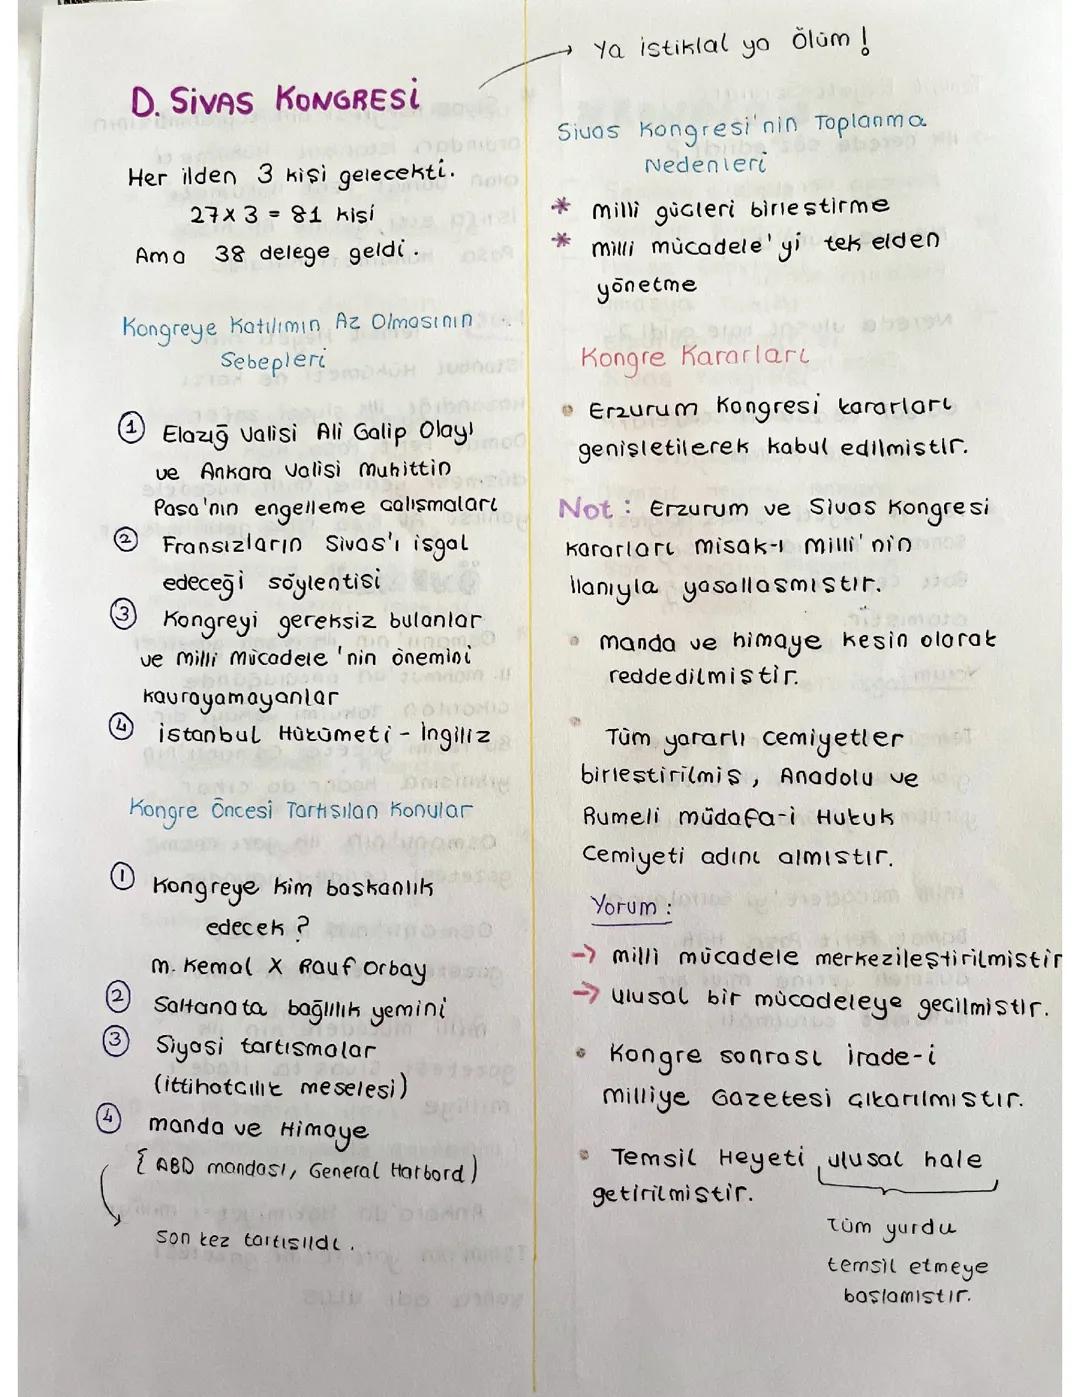 D. SİVAS KONGRESİ
Her ilden 3 kişi gelecekti.
27x3 = 81 kişi
Ama 38 delege geldi.
Kongreye Katılımın Az Olmasının
Sebepleri
① Elazığ Valisi Ali Galip Olayı
ve Ankara Valisi Muhittin
Paşa'nın engelleme çalışmaları
② Fransızların Sivas'ı işgal
edeceği söylentisi
③ Kongreyi gereksiz bulanlar
ve Milli Mücadele'nin önemini
kavrayamayanlar
④ İstanbul Hükümeti - İngiliz
Kongre Öncesi Tartışılan Konular
① Kongreye kim başkanlık
edecek ?
M. Kemal X Rauf Orbay
② Saltanata bağlılık yemini
③ Siyasi tartışmalar
(ittihatcılık meselesi)
④ manda ve Himaye
{ ABD mandası, General Harbord )
Son kez tartışıldı.
Ya istiklal ya Ölüm !
Sivas Kongresi'nin Toplanma
Nedenleri
* milli güçleri birleştirme
* milli mücadele'yi tek elden
yönetme
Kongre Kararları
• Erzurum Kongresi kararları
genişletilerek kabul edilmiştir.
Not : Erzurum ve Sivas Kongresi
kararları misak-ı milli'nin
ilanıyla yasallaşmıştır.
• manda ve himaye kesin olarak
reddedilmiştir.
• Tüm yararlı cemiyetler
birleştirilmiş, Anadolu ve
Rumeli müdafa-i Hukuk
Cemiyeti adını almıştır.
Yorum :
→ milli mücadele merkezileştirilmiştir
→ ulusal bir mücadeleye geçilmiştir.
• Kongre sonrası irade-i
milliye Gazetesi çıkarılmıştır.
• Temsil Heyeti ulusal hale
getirilmiştir.
Tüm yurdu
temsil etmeye
başlamıştır.